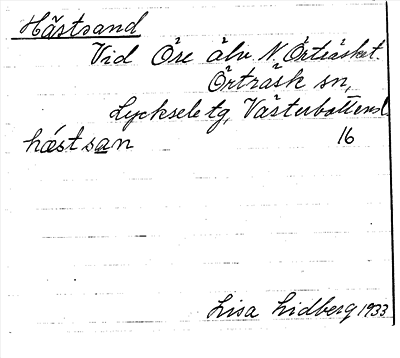 Hästsand
Vid Öre älv N. Örträsket.
Örträsk sn,
Lycksele tg, Västerbottens l.
hǽst san
16
Lisa Lidberg 1933